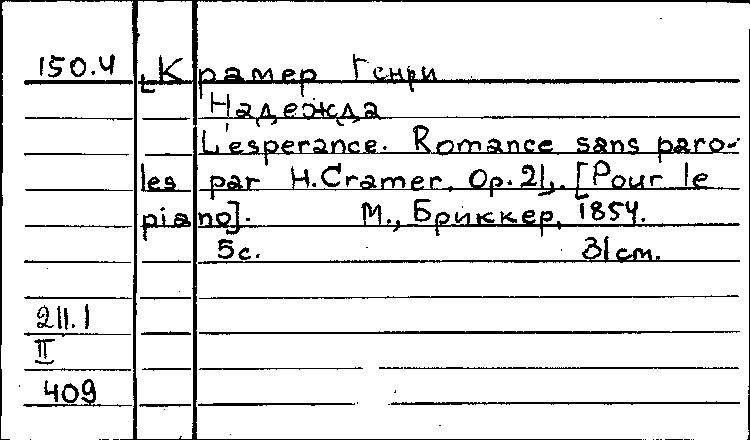 150.4 [Крамер Генри
Надежда
L'esperance. Romance sans paro-
les par H. Cramer. Op. 21. [Pour le
piano]. М., Бриккер, 1854.
5с. 31см.
211.1
II
409